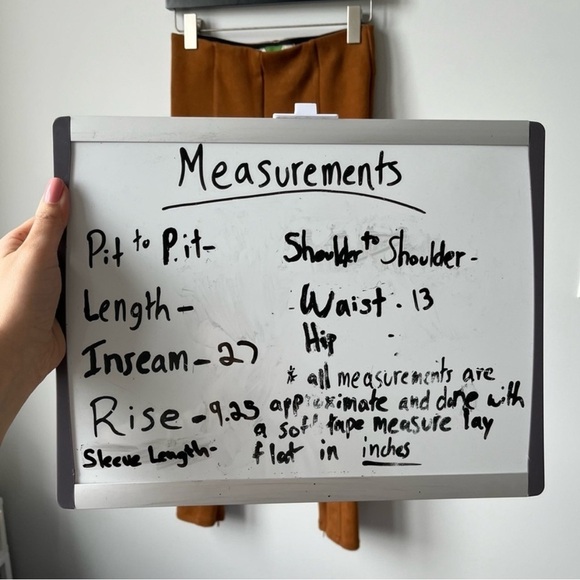 Measurements
Pit to Pit-
Shoulder to Shoulder -
Length -
Waist - 13
Inseam - 27
Hip -
* all measurements are
Rise - 9.25
approximate and done with
a soft tape measure lay
Sleeve Length-
flat in inches